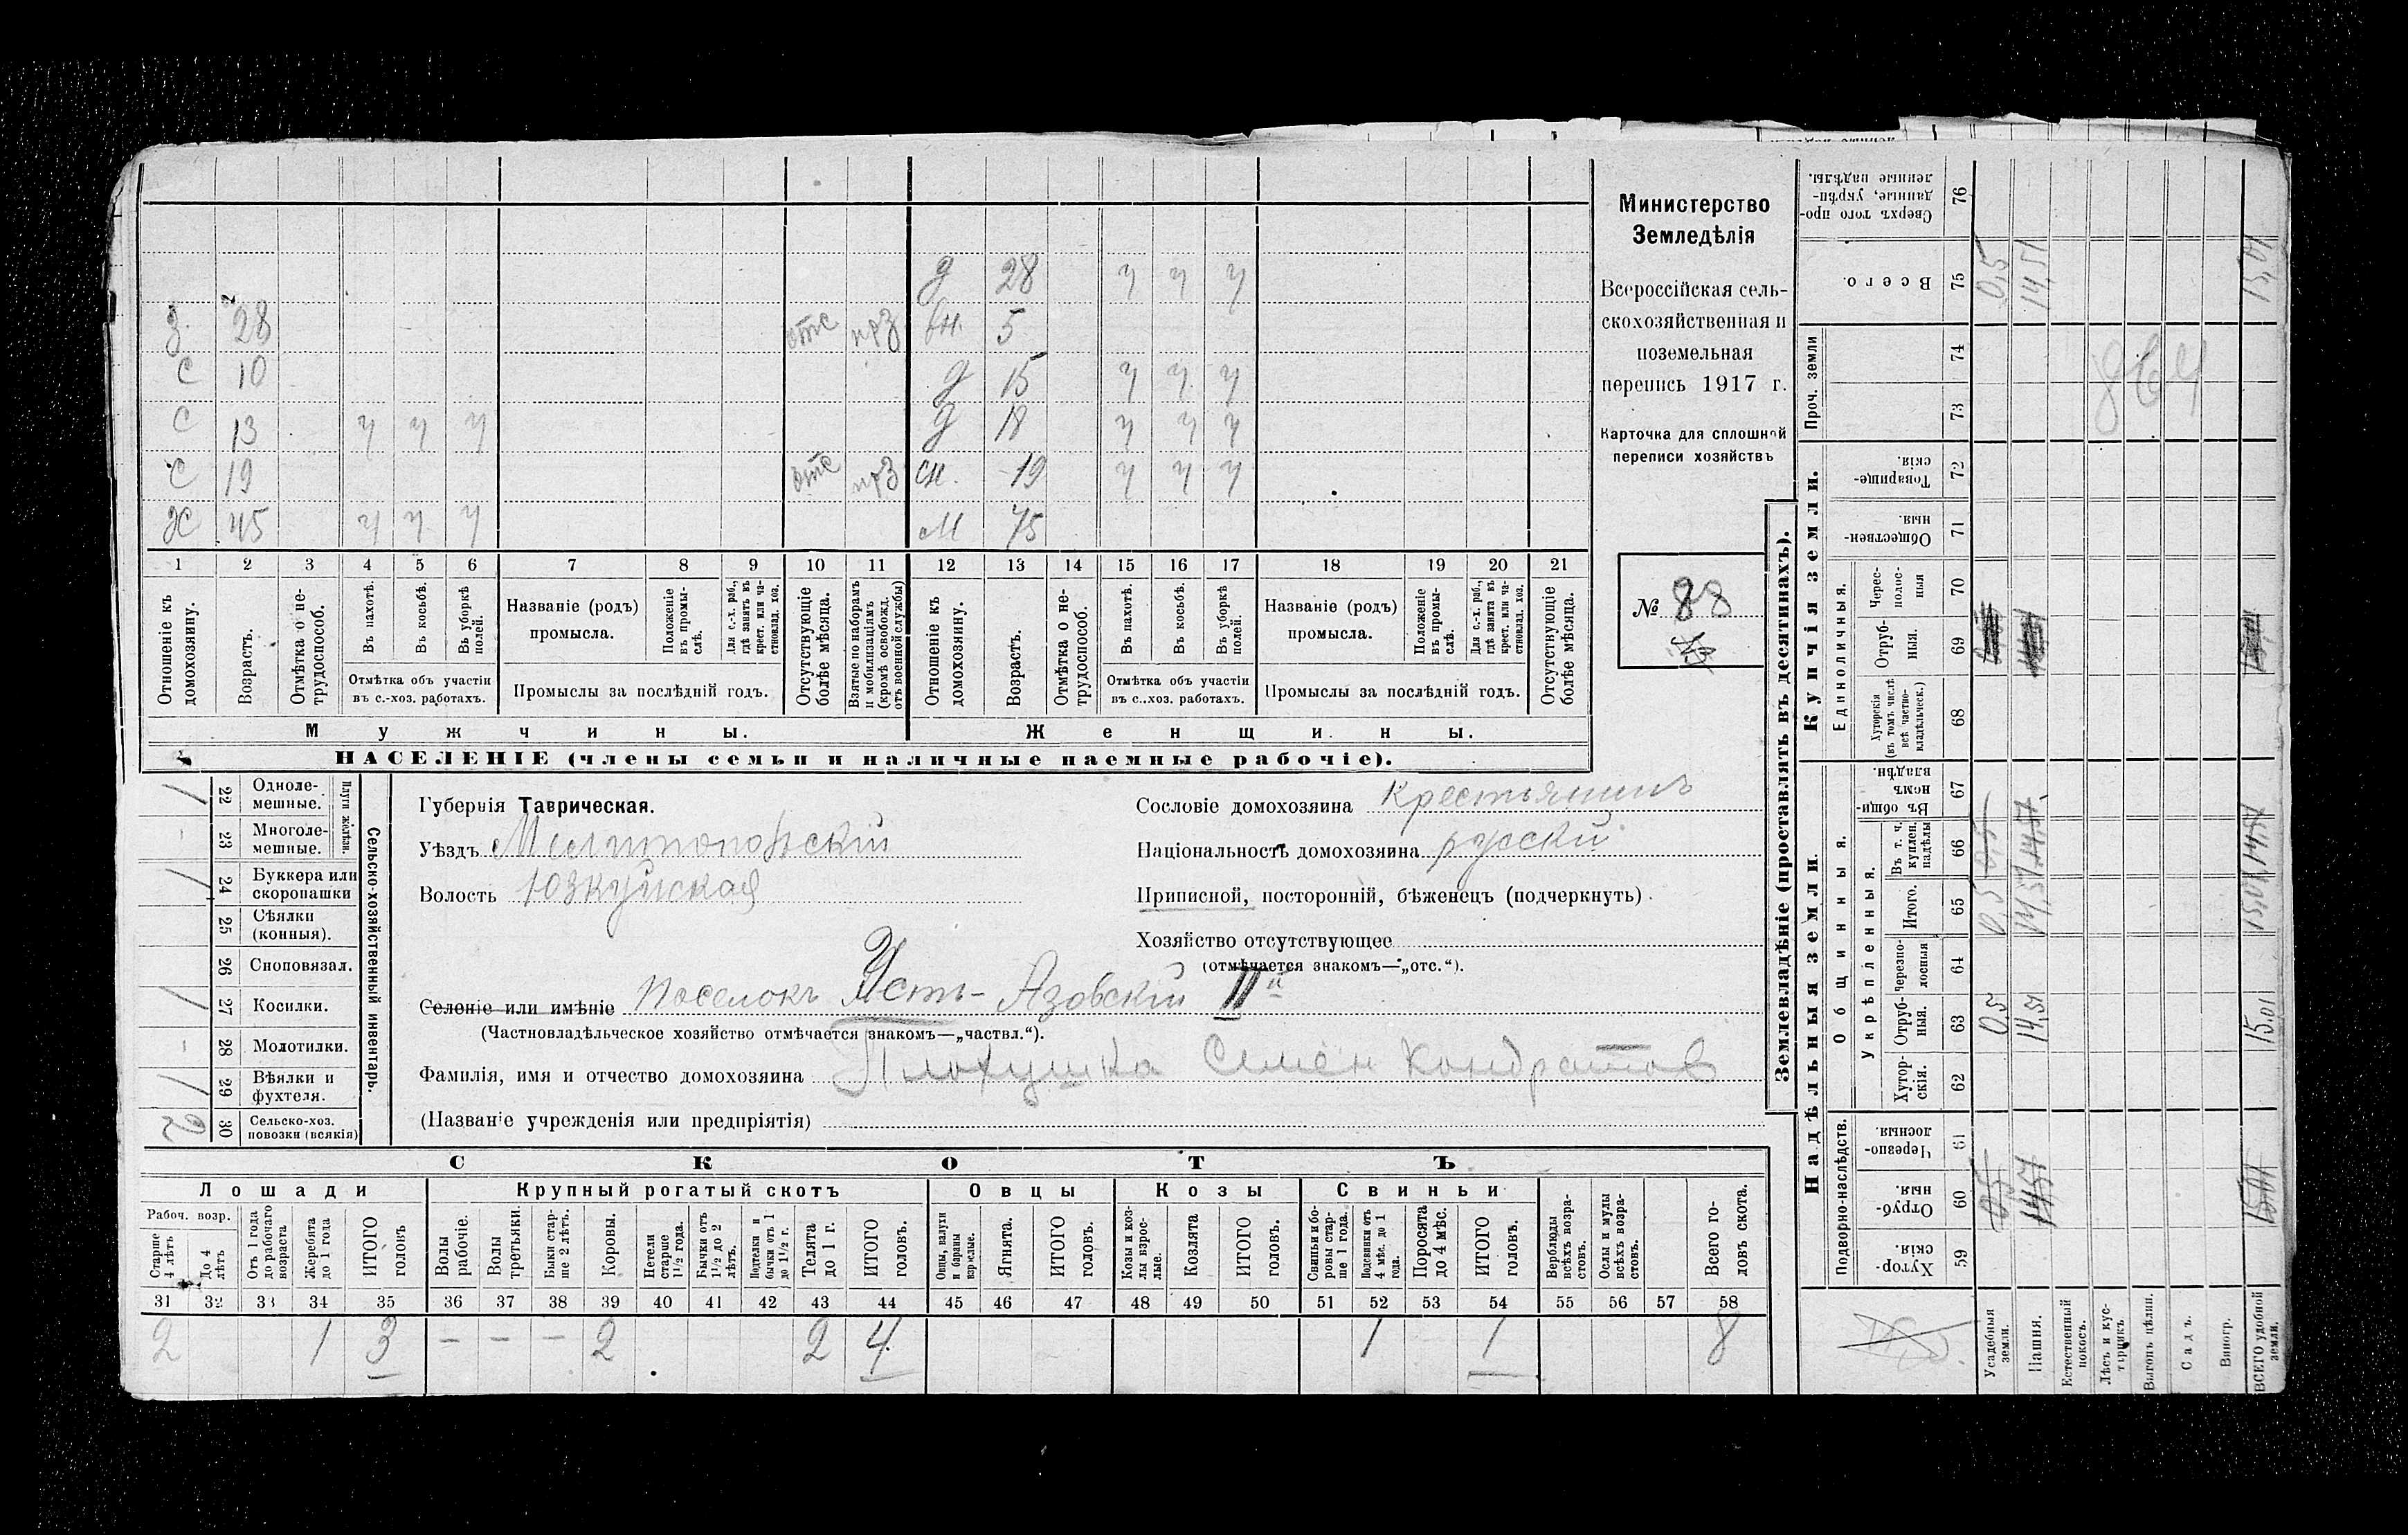 Министерство
Земледѣлія
Всероссійская сель-
скохозяйственная и
поземельная
перепись 1917 г.
Карточка для сплошной
переписи хозяйствъ
№ 88
д 28 ч ч ч
з. 28 отс прз вн. 5
с 10 д 15 ч ч ч
с 13 ч ч ч д 18 ч ч ч
с 19 отс прз сн. 19 ч ч ч
х 45 ч ч ч м 75
1 2 3 4 5 6 7 8 9 10 11 12 13 14 15 16 17 18 19 20 21
Отношеніе къ домохозяину.
Возрастъ.
Отмѣтка о не-трудоспособ.
Въ пахотѣ.
Въ косьбѣ.
Въ уборкѣ полей.
Отмѣтка объ участіи въ с.-хоз. работахъ.
Названіе (родъ) промысла.
Положеніе въ промы-слѣ.
Для с.-х. раб., гдѣ занятъ въ крест. или ча-стновлад. хоз.
Промыслы за послѣдній годъ.
Отсутствующіе болѣе мѣсяца.
Взятые по наборамъ и мобилизаціямъ (кромѣ освобожд. отъ военной службы)
Отношеніе къ домохозяину.
Возрастъ.
Отмѣтка о не-трудоспособ.
Въ пахотѣ.
Въ косьбѣ.
Въ уборкѣ полей.
Отмѣтка объ участіи въ с.-хоз. работахъ.
Названіе (родъ) промысла.
Положеніе въ промы-слѣ.
Для с.-х. раб., гдѣ занята въ крест. или ча-стновлад. хоз.
Промыслы за послѣдній годъ.
Отсутствующіе болѣе мѣсяца.
Мужчины. Женщины.
НАСЕЛЕНІЕ (члены семьи и наличные наемные рабочіе).
Сельско-хозяйственный инвентарь.
Плуги желѣзн.
1 22 Одноле-мешные.
- 23 Многоле-мешные.
1 24 Буккера или скоропашки
25 Сѣялки (конныя).
26 Сноповязал.
1 27 Косилки.
- 28 Молотилки.
1 29 Вѣялки и фухтеля.
2 30 Сельско-хоз. повозки (всякія)
Губернія Таврическая.
Уѣздъ Мелитопольскій
Волость Юзкуйская
Сословіе домохозяина крестьянинъ
Національность домохозяина русскій
Приписной, посторонній, бѣженецъ (подчеркнуть)
Хозяйство отсутствующее
(отмѣчается знакомъ—„отс.“).
Селеніе или имѣніе поселокъ Усть-Азовскій IIй
(Частновладѣльческое хозяйство отмѣчается знакомъ—„частвл.“).
Фамилія, имя и отчество домохозяина Плохушка Семен Кондратов
(Названіе учрежденія или предпріятія)
СКОТЪ
Лошади Крупный рогатый скотъ Овцы Козы Свиньи
Рабоч. возр.
Старше 4 лѣтъ
До 4 лѣтъ
Отъ 1 года до рабочаго возраста
Жеребята до 1 года
ИТОГО головъ
Волы рабочіе.
Волы третьяки.
Быки стар-ше 2 лѣтъ.
Коровы.
Нетели старше 1½ года.
Бычки отъ 1½ до 2 лѣтъ.
Подтелки и бычки отъ 1 до 1½ г.
Телята до 1 г.
ИТОГО головъ.
Овцы, валухи и бараны взрослые.
Ягнята.
ИТОГО головъ.
Козы и коз-лы взрос-лые.
Козлята
ИТОГО головъ.
Свиньи и бо-ровы стар-ше 1 года.
Подсвинки отъ 4 мѣс. до 1 года.
Поросята до 4 мѣс.
ИТОГО головъ.
Верблюды всѣхъ возра-стовъ.
Ослы и мулы всѣхъ возра-стовъ.
Всего го-ловъ скота.
31 32 33 34 35 36 37 38 39 40 41 42 43 44 45 46 47 48 49 50 51 52 53 54 55 56 57 58
2 1 3 - - - 2 2 4 1 1 8
Землевладѣніе (проставлять въ десятинахъ).
Надѣльныя земли. Купчія земли. Проч. земли
Подворно-наслѣдств.
Общинныя.
Укрѣпленныя.
Единоличныя.
59 Хутор-скія.
60 Отруб-ныя.
61 Черезпо-лосныя.
62 Хутор-скія.
63 Отруб-ныя.
64 черезпо-лосныя
65 Итого.
66 Въ т. ч. куплен. надѣлы
67 Въ общи-номъ владѣн.
68 Хуторскія (въ томъ числѣ всѣ частно-владѣльческ.)
69 Отруб-ныя.
70 Черес-полос-ныя
71 Обществен-ныя.
72 Товарище-скія.
73
74
75 Всего.
76 Сверхъ того про-данные, укрѣп-ленные надѣлы.
Усадебныя земли. 0,5 0,5 0,5 0,5 0,5
Пашня. 14,51 14,51 14,51 14,51 14,51
Естественный покосъ.
Лѣсъ и кус-тарникъ
Выгонъ цѣлин.
Садъ.
Виногр.
ВСЕГО удобной земли. 15,01 15.01 15,01 14,51 15,01